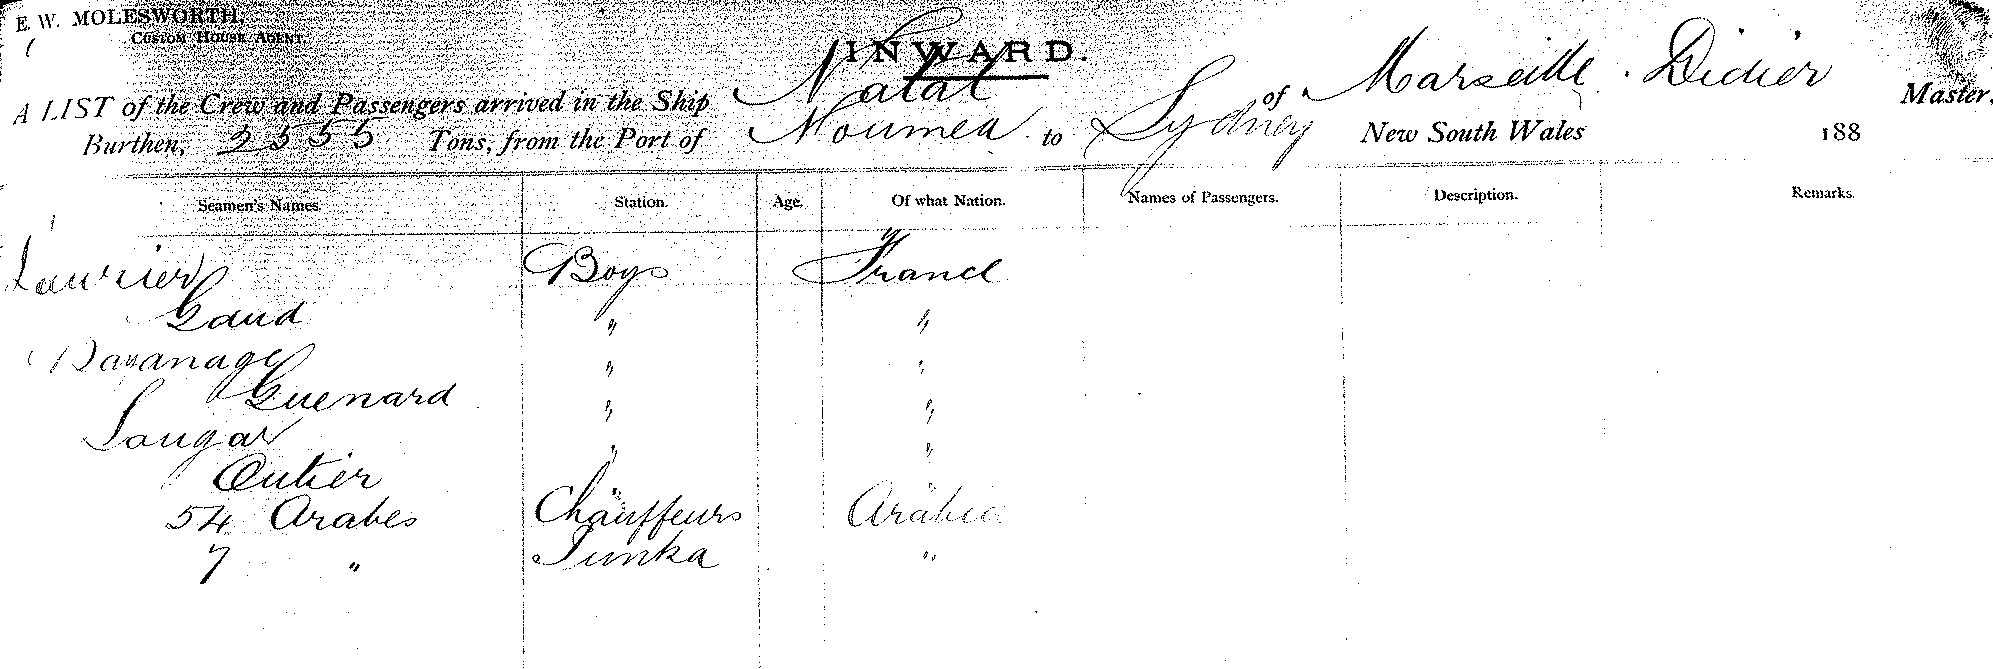 E. W. MOLESWORTH,
CUSTOM HOUSE AGENT.
INWARD.
A LIST of the Crew and Passengers arrived in the Ship Natal of Marseille . Didier Master,
Burthen, 3555 Tons, from the Port of Noumea to Sydney New South Wales 188
Seamen's Names. Station. Age. Of what Nation. Names of Passengers. Description. Remarks.
Laurier Boys France
Gaud " "
" "
Guenard " "
Sougar " "
Cutier " "
54 Arabes Chauffeurs Arabia
7 " Sunka "